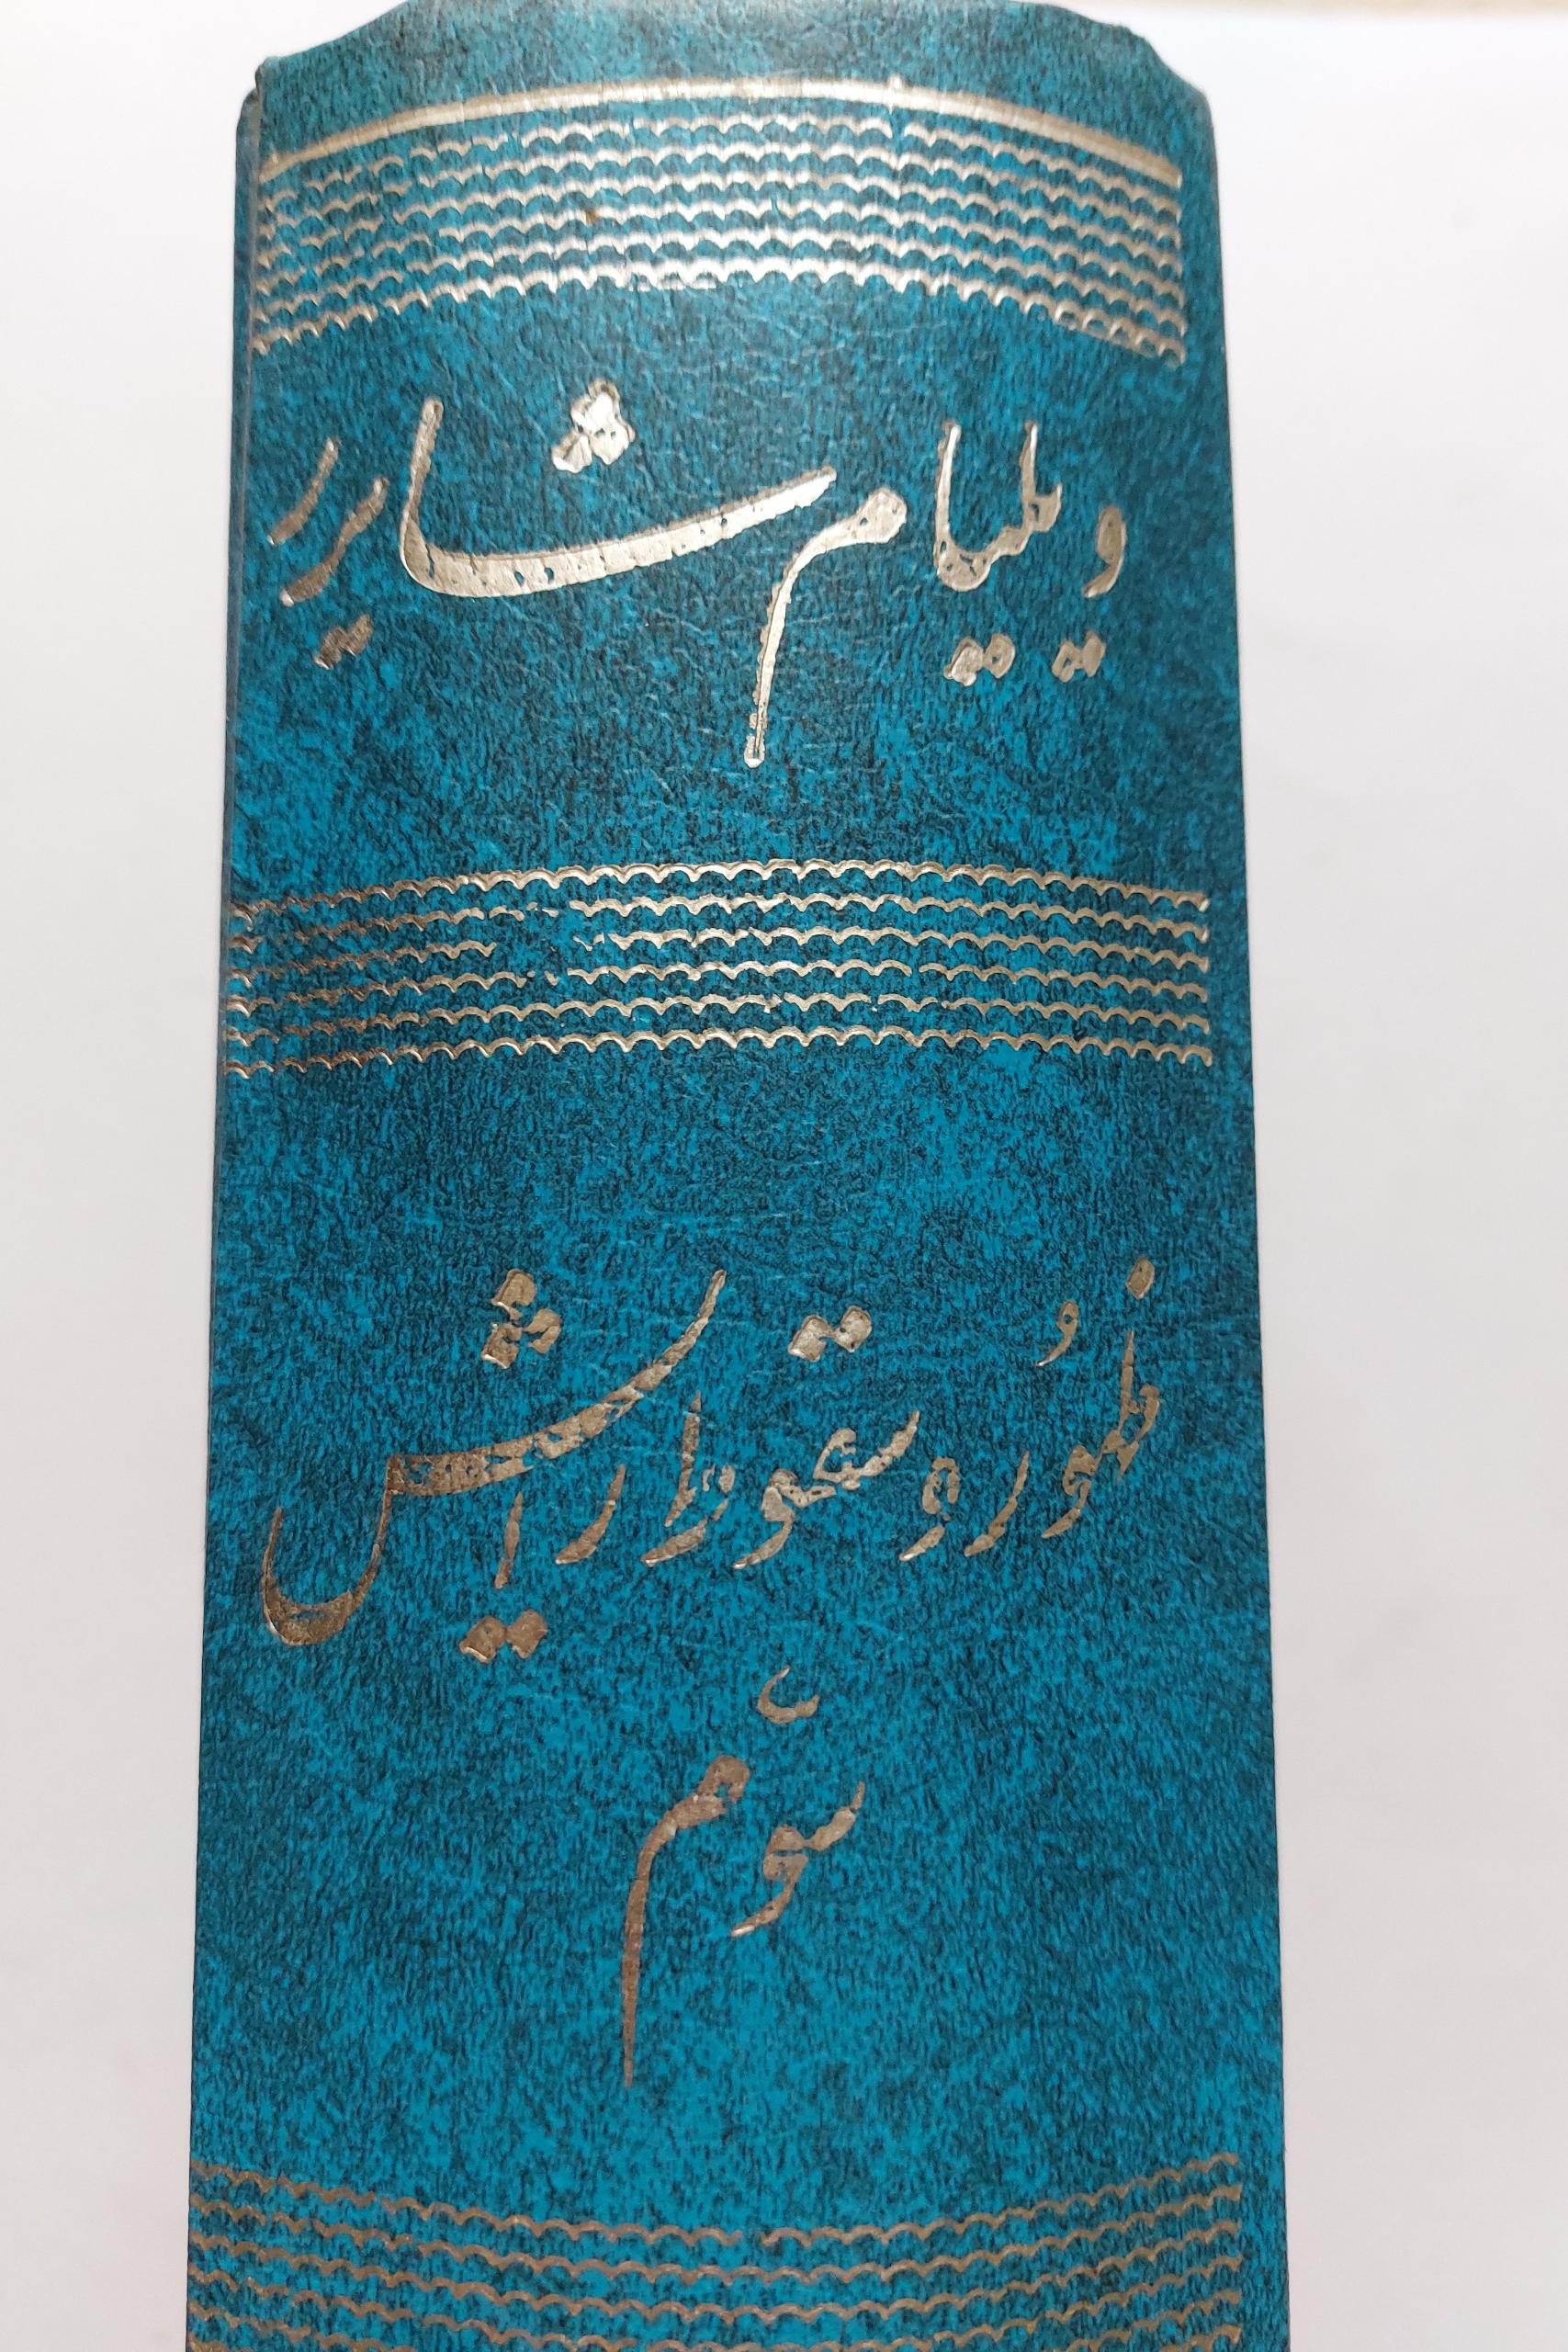 ویلیام شایرر
ظهور و سقوط رایش
سوّم